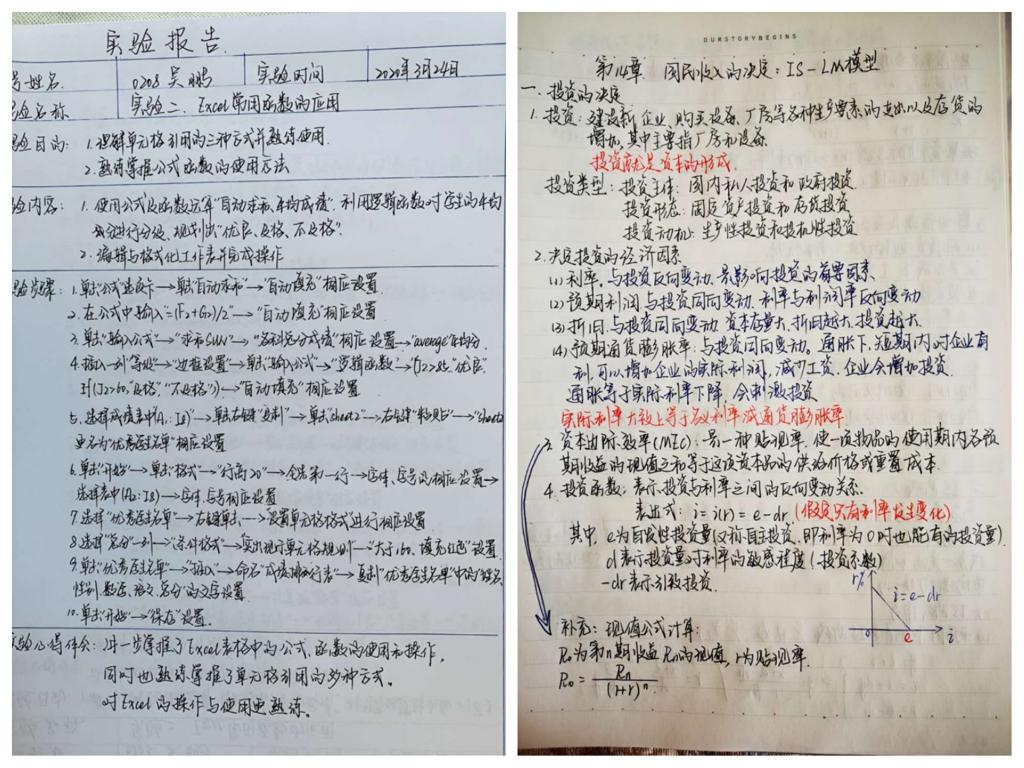 实验报告
号姓名 0208 吴鹏 实验时间 2020年3月24日
验名称 实验二、Excel常用函数的应用
验目的: 1.理解单元格引用的三种方式并熟练使用.
2.熟练掌握公式函数的使用方法
验内容: 1.使用公式及函数运算"自动求和,平均成绩".利用逻辑函数对学生的平均
成分进行分级,规划出"优良,及格,不及格".
2.编辑与格式化工作表并完成操作
验步骤: 1.单击"公式选项卡→单击"自动求和"→"自动填充"相应设置
2.在公式中输入"=(F2+G2)/2"→"自动填充"相应设置
3.单击"输入公式"→"求和SUM"→"各科总分成绩"相应设置→"average"平均分.
4.插入一列"等级"→"边框设置"→单击"输入公式"→"逻辑函数"→"(J2>=85,"优良",
If(J2>=60,"及格","不及格"))→"自动填充"相应设置
5.选择成绩表中(A2:I8)→单击右键"复制"→单击"sheet2"→右键"粘贴"→"sheet2
更名为"优秀学生名单"相应设置
6.单击"开始"→单击"格式"→"行高20"→全选第一行→字体,字号的相应设置→
选择表中(A2:I8)→字体,字号相应设置
7.选择"优秀学生名单"→右键单击→设置单元格格式进行相应设置
8.选择"总分"一列→"条件格式"→"突出显示单元格规则"→"大于160,填充红色"设置
9.单击"优秀学生名单"→"插入"→命名"成绩排行表"→复制"优秀学生名单"中的"姓名,
性别,数学,语文,总分"的文字设置
10.单击"开始"→"保存"设置.
实验心得体会: 进一步掌握了Excel表格中的公式,函数的使用和操作,
同时也熟练掌握了单元格引用的多种方式.
对Excel的操作与使用更熟练。
OURSTORYBEGINS
第14章 国民收入的决定:IS-LM模型
一.投资的决定
1.投资:建设新企业、购买设备、厂房等各种生产要素的支出以及存货的
增加,其中主要指厂房和设备.
投资就是资本的形成.
投资类型:投资主体:国内私人投资和政府投资
投资形态:固定资产投资和存货投资
投资动机:生产性投资和投机性投资
2.决定投资的经济因素
(1)利率,与投资反向变动,是影响投资的首要因素
(2)预期利润,与投资同向变动,利率与利润率反向变动
(3)折旧,与投资同向变动,资本存量大,折旧越大,投资越大.
(4)预期通货膨胀率:与投资同向变动。通胀下,短期内,对企业有
利,可以增加企业的实际利润,减少工资,企业会增加投资.
通胀等于实际利率下降,会刺激投资
实际利率大致上等于名义利率减通货膨胀率
3.资本边际效率(MEC):是一种贴现率,使一该物品的使用期内各预
期收益的现值之和等于这该资本品的供给价格或重置成本.
4.投资函数:表示投资与利率之间的反向变动关系.
表达式:i=i(r)=e-dr(假设只有利率发生变化)
其中,e为自发性投资量(又称自主投资,即利率为0时也能有的投资量).
d表示投资量对利率的敏感程度(投资系数)
-dr表示引致投资.
r%
i=e-dr
0 e i
补充:现值公式计算:
R0为第n期收益Rn的现值,r为贴现率.
R0 = Rn/(1+r)^n.